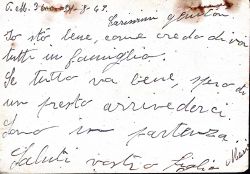 Carissimi genitori
Io stò bene, come credo di voi
tutti in famiglia.
Se tutto va bene, spero di
un presto arrivederci.
Sono in partenza.
Saluti vostro figlio